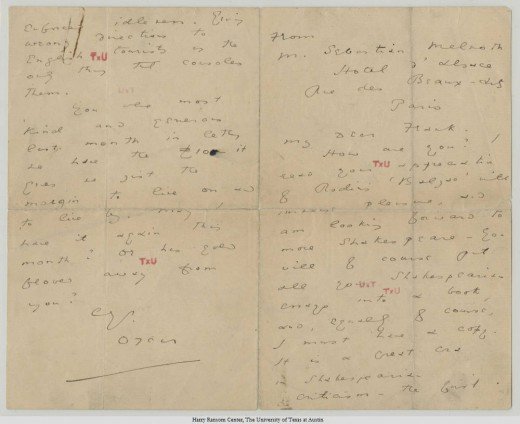 idleness. Giving
wrong direction to
English tourists is the
TxU
only thing that consoles
them.
You were most
kind and generous
last month in letting
me have the £10 it
gives me just the
margin to live on and
to live by. May I
have it again this
month? Or has gold
TxU
flown away from
you?
Oscar
From
M. Sebastian Melmoth
Hotel d'Alsace
Rue des Beaux-Arts
Paris
My dear Frank.
How are you? I
TxU
read your appreciation
of Rodin's 'Balzac' with
intense pleasure, and
am looking forward to
more Shakespeare - you
will of course put
all your Shakespearian
UxT TxU
essays into a book,
and, equally of course,
I must have a copy.
It is a great era
in Shakespearian
criticism - the first
Harry Ransom Center, The University of Texas at Austin